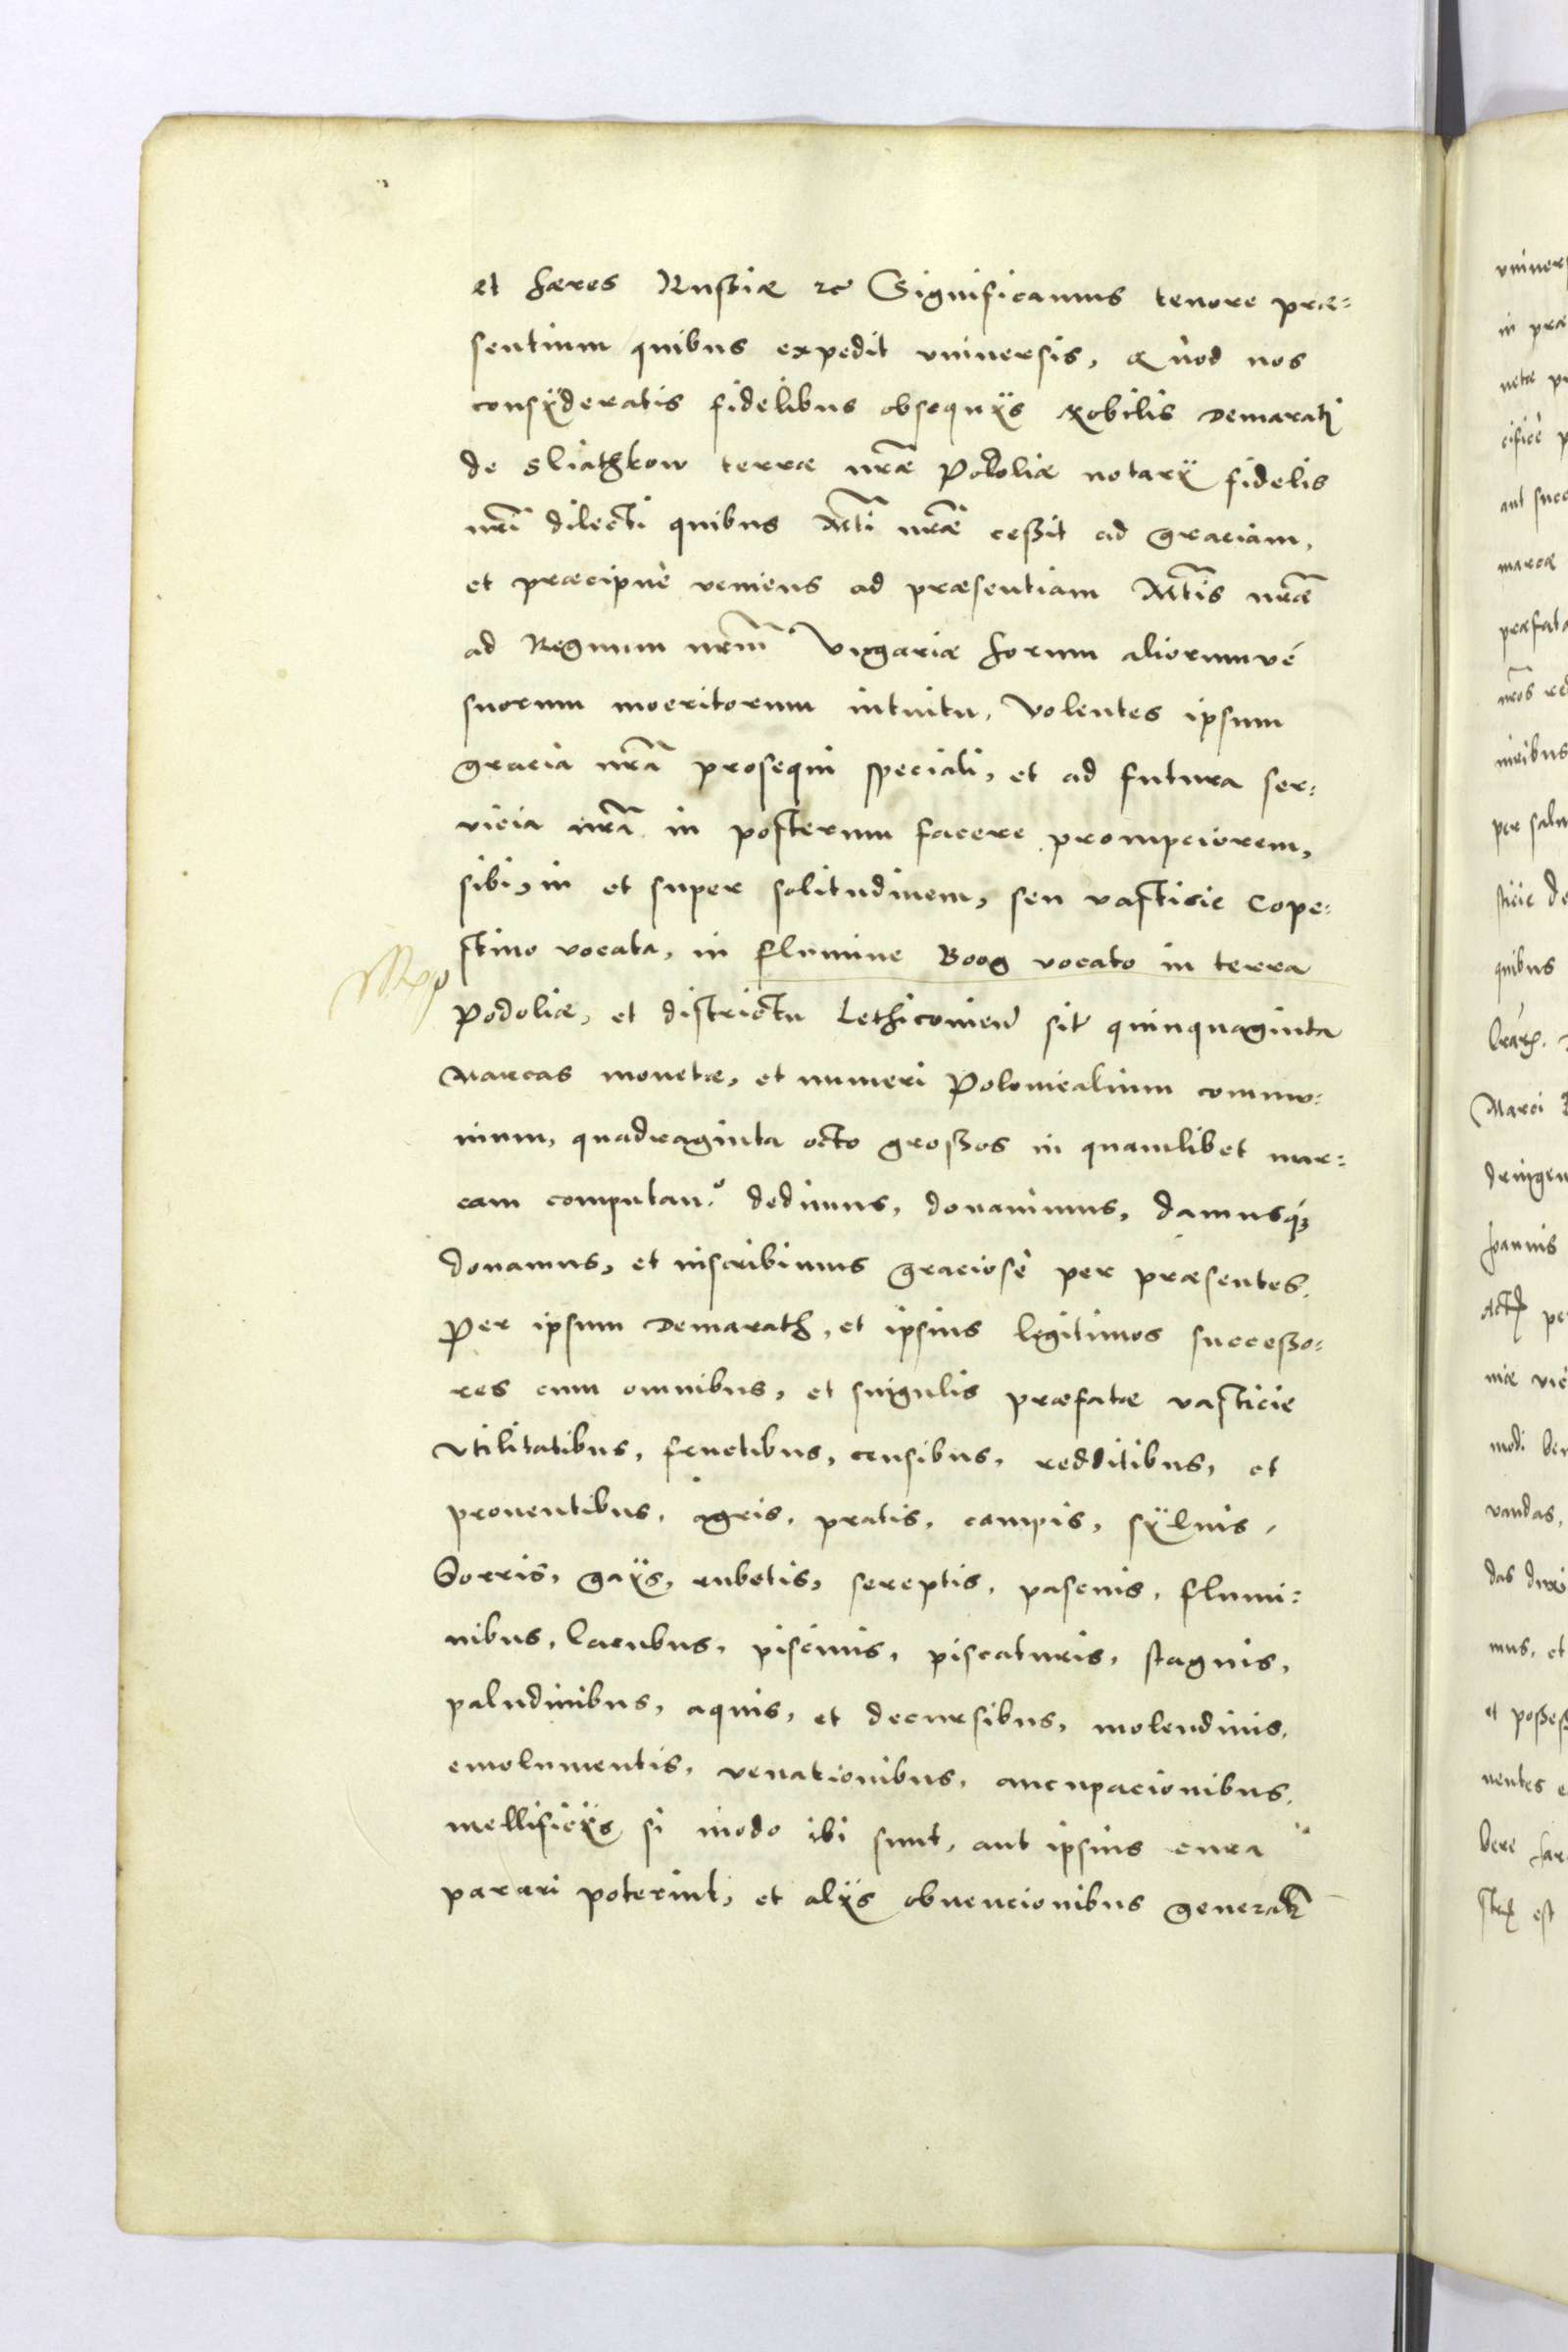 et hæres Russiæ &c Significamus tenore præ=
sentium quibus expedit vniuersis, Quòd nos
consÿderatis fidelibus obsequÿs Nobilis Demarath
de Sliathkow terræ nr̃æ Podoliæ notarÿ fidelis
nr̃i dilecti quibus Mti nr̃æ ceßit ad graciam,
et præcipuè veniens ad præsentiam Mtis nr̃æ
ad Regnum nr̃m Vngariæ horum aliorumvé
suorum moeritorum intuitu, Volentes ipsum
gracia nr̃a prosequi speciali, et ad futura ser=
vicia nr̃a in posterum facere prompciorem,
sibi, in et super solitudinem, seu vasticie Cope=
stino vocata, in flumine Boog vocato in terra
Podoliæ, et districtu Lethicouien̄ sit̃ quinquaginta
Marcas monetæ, et numeri Polonicalium commu=
nium, quadraginta octo großos in quamlibet mar=
cam computan.º dedimus, donauimus, damusq́;
donamus, et inscribimus graciosè per præsentes.
Per ipsum Demarath, et ipsius legitimos succeßo=
res cum omnibus, et singulis præfatæ vasticie
vtilitatibus, fructibus, censibus, redditibus, et
prouentibus, agris, pratis, campis, sÿluis,
borris, gaÿs, rubetis, sereptis, pascuis, flumi=
nibus, lacubus, piscinis, piscaturis, stagnis,
paludinibus, aquis, et decursibus, molendinis,
emolumentis, venationibus, aucupacionibus,
mellificÿs si modo ibi sunt, aut ipsius cura
parari poterint, et alÿs obuencionibus general̃r